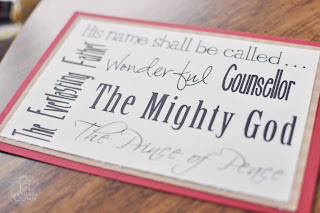 His name shall be called...
The Everlasting Father
Wonderful
Counsellor
The Mighty God
The Prince of Peace